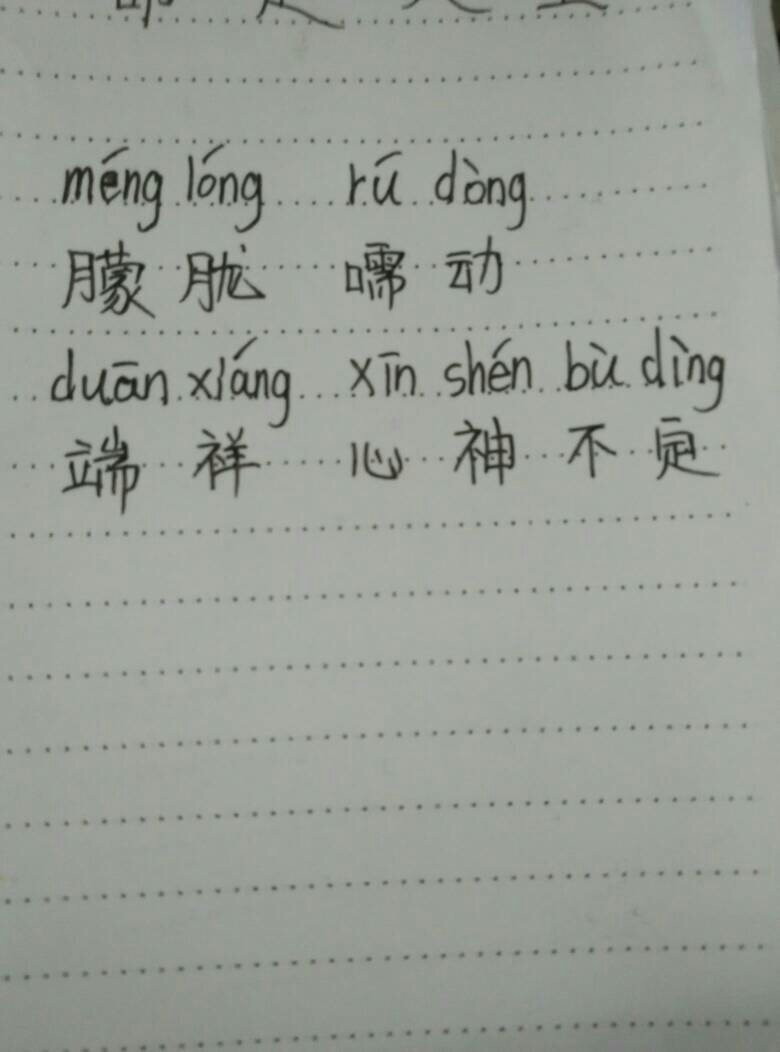 méng lóng rú dòng
朦胧 嚅动
duān xiáng xīn shén bù dìng
端祥 心神不定